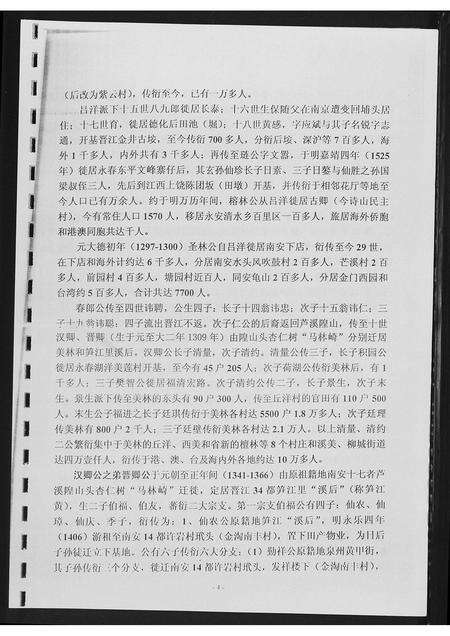 (后改为紫云村)，传衍至今，已有一万多人。
吕洋派下十五世八九郎徙居长泰；十六世生保随父在南京遭变回埔头居
住；十七世育，徙居德化后田池（堀）；十八世黄感，字应斌与其子名锐字志
通，开基晋江金井古垵，至今传衍 700 多人，分衍后垵、深沪等 7 百多人，海
外 1 千多人，内外共有 3 千多人；再传至琏公字文器，于明嘉靖四年（1525
年）徙居永春东平文峰寨仔后，其玄孙仙珍长子日素、三子日鏊与仙胜之孙国
梁叔侄三人，先后到江西上饶陈团坂（田墩）开基，并传衍于相邻花厅等地至
今人口已有万余人。约于明万历年间，榕林公从吕洋徙居古卿（今诗山民主
村），今有常住人口 1570 人，移居永安清水乡百里区一百多人，旅居海外侨胞
和港澳同胞共达千人。
元大德初年（1297-1300）圣林公自吕洋徙居南安下店，衍传至今 29 世，
在下店和海外计约达 6 千多人，分居南安水头风吹鼓村 2 百多人，芒溪村 2 百
多人，前园村 4 百多人，塘园村近百人，同安龟山 2 百多人，分居金门西园和
台湾约 5 百多人，合计共达 7700 人。
春郎公传至四世讳聘，公生四子；长子十四翁讳忠；次子十五翁讳仁；三
子十九翁讳聪；四子流出晋江不返。次子仁公的后裔返回芦溪隍山，传至十世
汉卿、晋卿（生于元至大二年 1309 年）由隍山头杏仁树“马林崎”分别迁居
美林和笋江里溪后。汉卿公长子清量，次子清约。清量公传三子，长子积园公
徙居永春湖洋美莲村开基，至今有 45 户 205 人；次子荷湖公传衍美林后，有 1
千多人；三子樊智公徙居福清宏路。次子清约公传二子，长子景生，次子末
生。景生派下传至美林的东头有 90 户 300 人，传至丘洋村的官田有 110 户 500
人。末生公子福进之长子廷琪传衍于美林各村达 5500 户 1.8 万多人；次子廷理
传美林有 800 户 2 千人；三子廷璧传衍美林各村达 2.1 万人，以上清量、清约
二公繁衍集中于美林的丘洋、西美和省新的檀林等 8 个村庄和溪美、柳城街道
达四万壹仟人，衍传于港、澳、台及海内外各地约达 10 万多人。
汉卿公之弟晋卿公于元朝至正年间（1341-1366）由原祖籍地南安十七者芦
溪隍山头杏仁树“马林崎”迁徙，定居晋江 34 都笋江里“溪后”（称笋江
黄），生二子伯福、伯友，蕃衍二大宗支。第一宗支伯福公有四子：仙农、仙
璋、仙庆、季子，衍传为：1、仙农公原籍地笋江“溪后”，明永乐四年
（1406）游租至南安 14 都许岩村坻头（金淘南丰村），置下田产物业，为日后
子孙徙迁立下基地。公有六子传衍六大分支：（1）勤祥公原籍地泉州黄甲街，
其子孙传衍三个分支，徙迁南安 14 都许岩村坻头，发祥楼下（金淘南丰村），
- 4 -